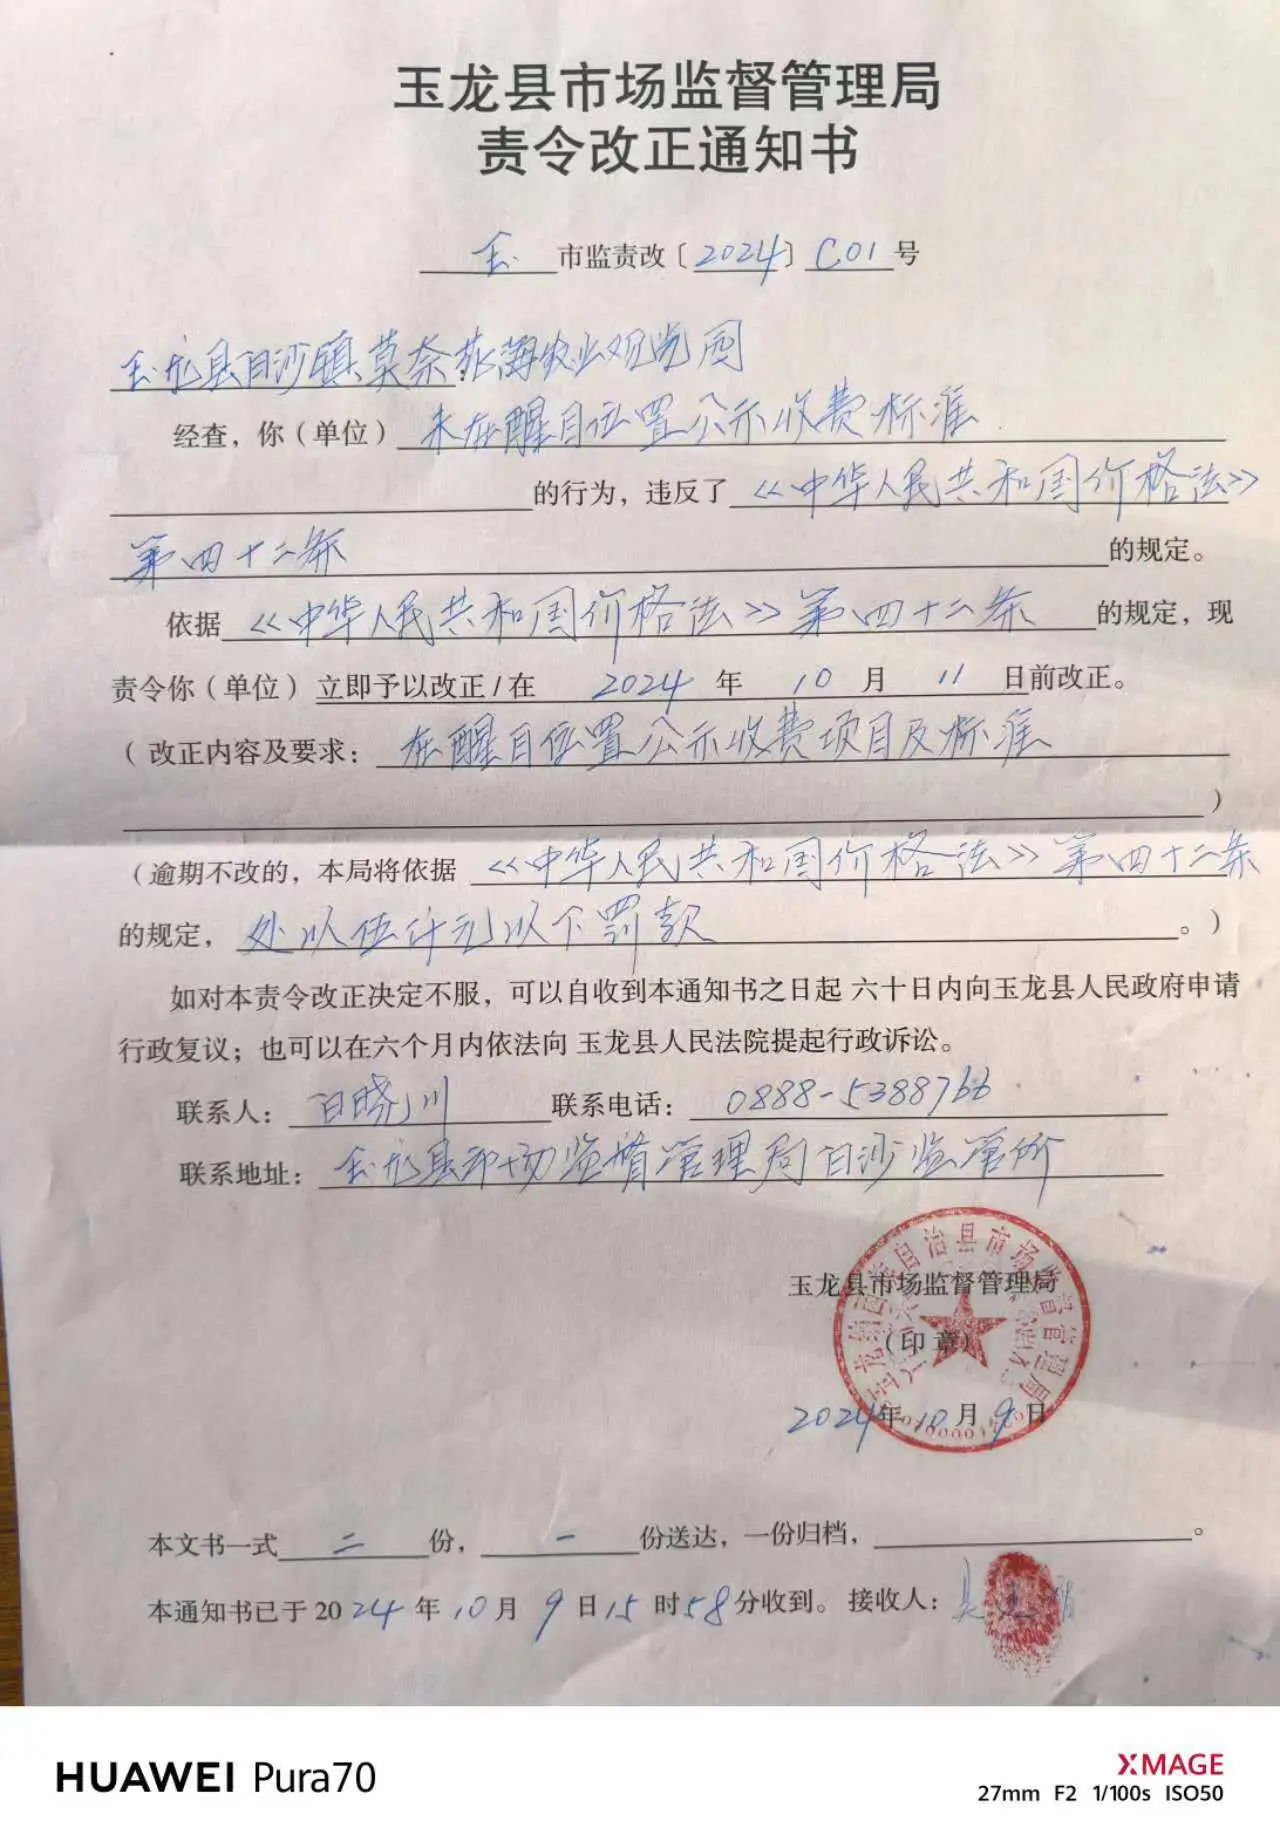 玉龙县市场监督管理局
责令改正通知书
玉 市监责改〔2024〕C01号
玉龙县白沙镇莫奈花海农业观光园
经查，你（单位）未在醒目位置公示收费标准
的行为，违反了《中华人民共和国价格法》
第四十二条的规定。
依据《中华人民共和国价格法》第四十二条的规定，现
责令你（单位）立即予以改正/在 2024 年 10 月 11 日前改正。
（改正内容及要求：在醒目位置公示收费项目及标准
）
（逾期不改的，本局将依据《中华人民共和国价格法》第四十二条
的规定，处以伍仟元以下罚款。）
如对本责令改正决定不服，可以自收到本通知书之日起 六十日内向玉龙县人民政府申请
行政复议；也可以在六个月内依法向 玉龙县人民法院提起行政诉讼。
联系人：白晓川 联系电话：0888-5388766
联系地址：玉龙县市场监督管理局白沙监管所
玉龙纳西族自治县市场监督管理局
玉龙县市场监督管理局
（印章）
2024年10月9日
本文书一式二份，一份送达，一份归档，。
本通知书已于2024年10月9日15时58分收到。接收人：
HUAWEI Pura70
XMAGE
27mm F2 1/100s ISO50